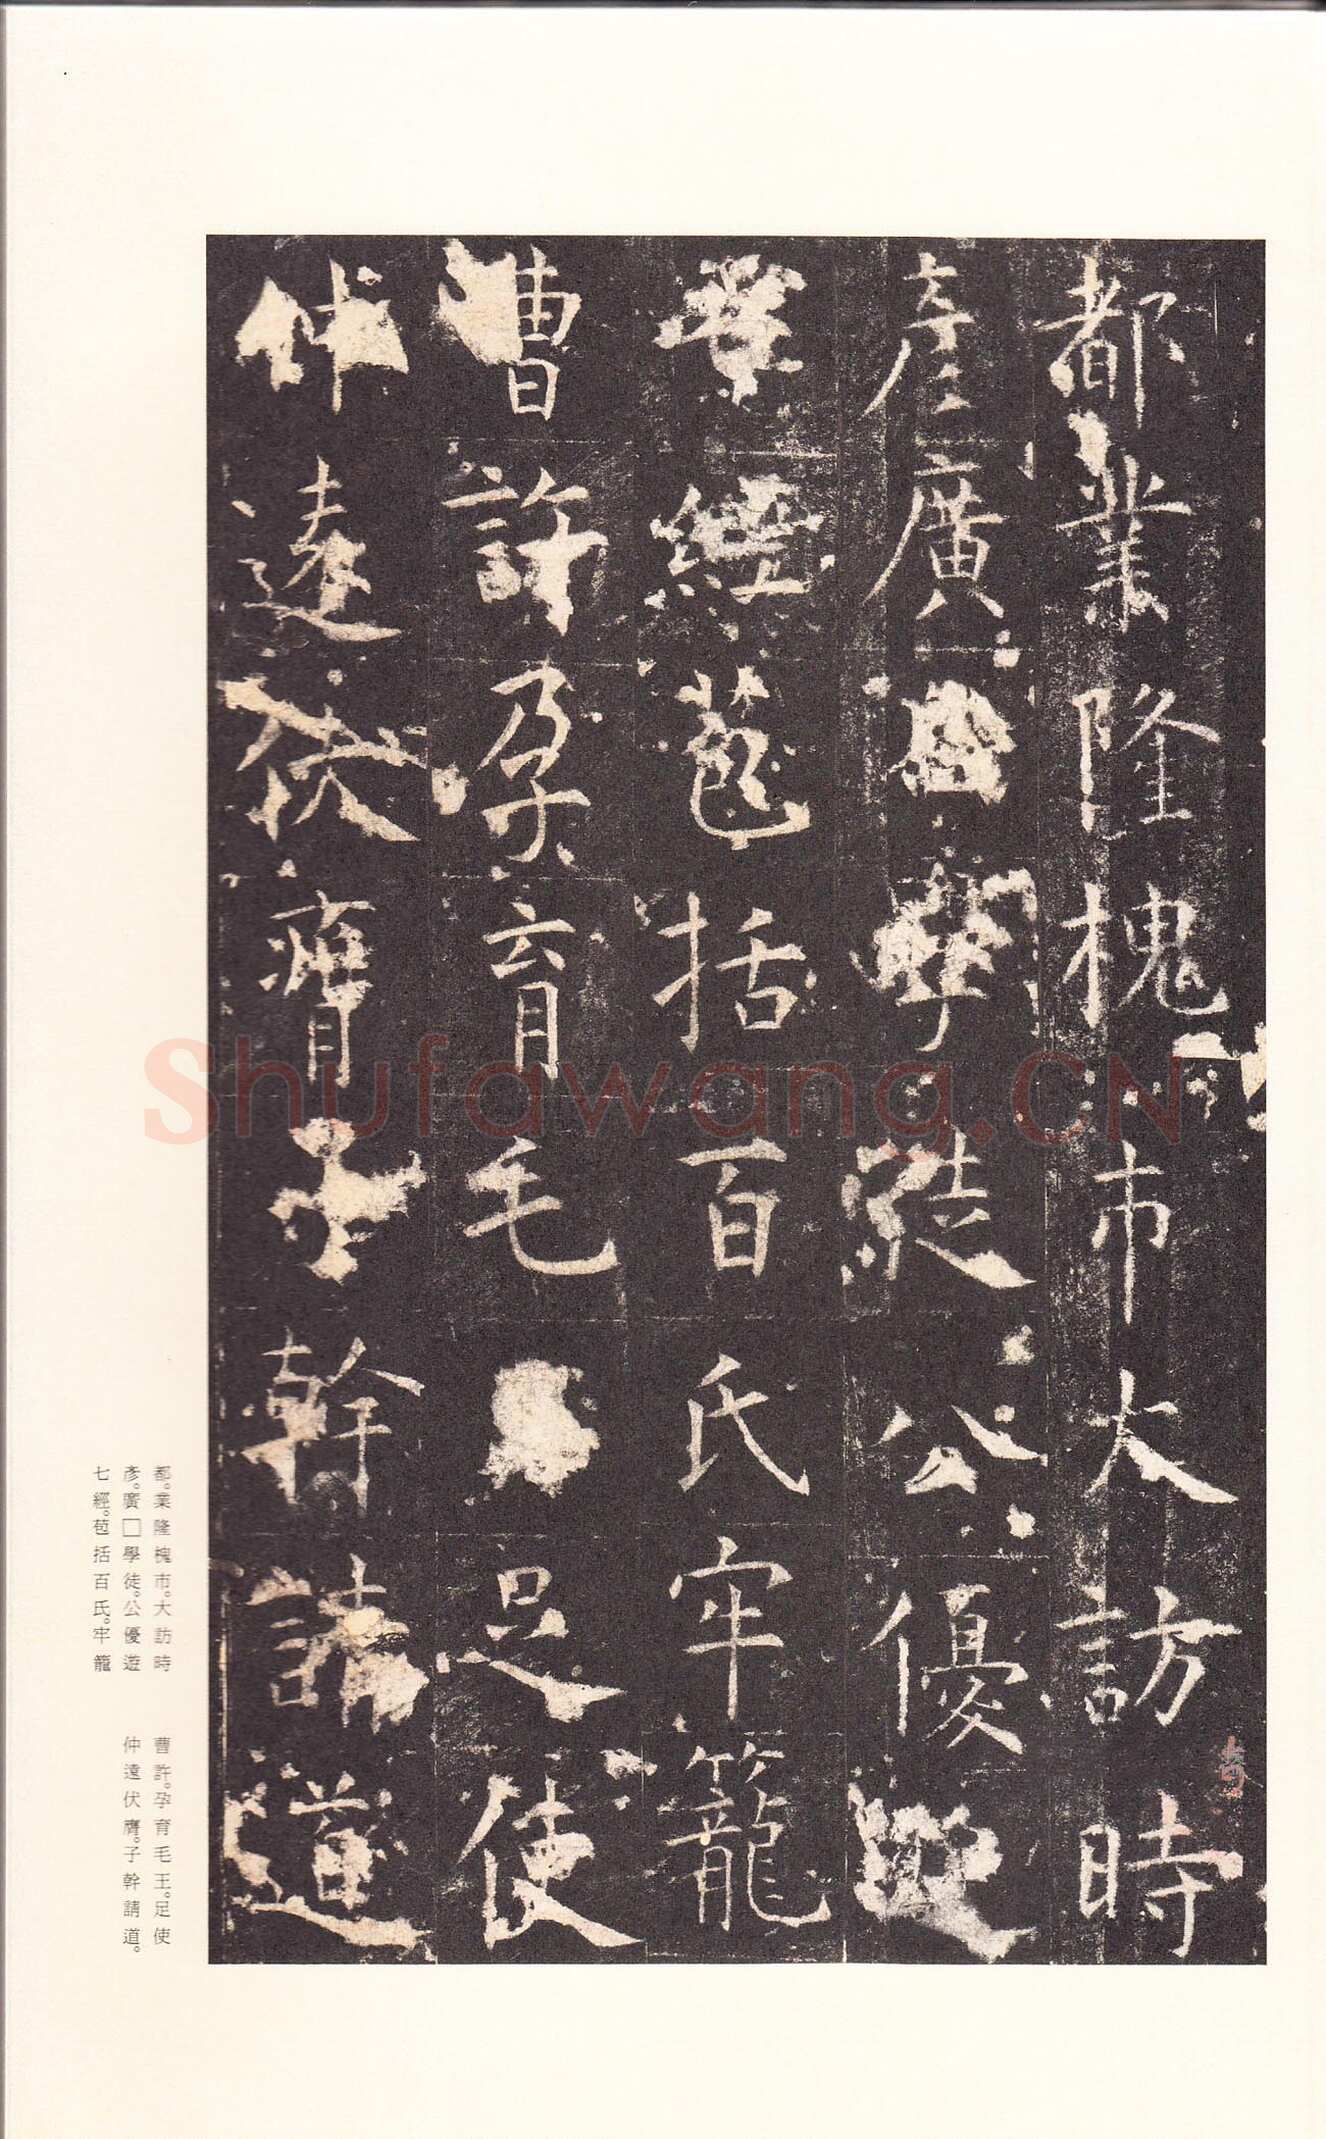 都業隆槐市大訪時
彥廣學徒公優遊
經苞括百氏牢籠
曹許孕育毛足使
仲遠伏膺子幹請道
都。業隆槐市。大訪時
彥。廣□學徒。公優遊
七經。苞括百氏。牢籠
曹許。孕育毛王。足使
仲遠伏膺。子幹請道。
Shufawang.CN